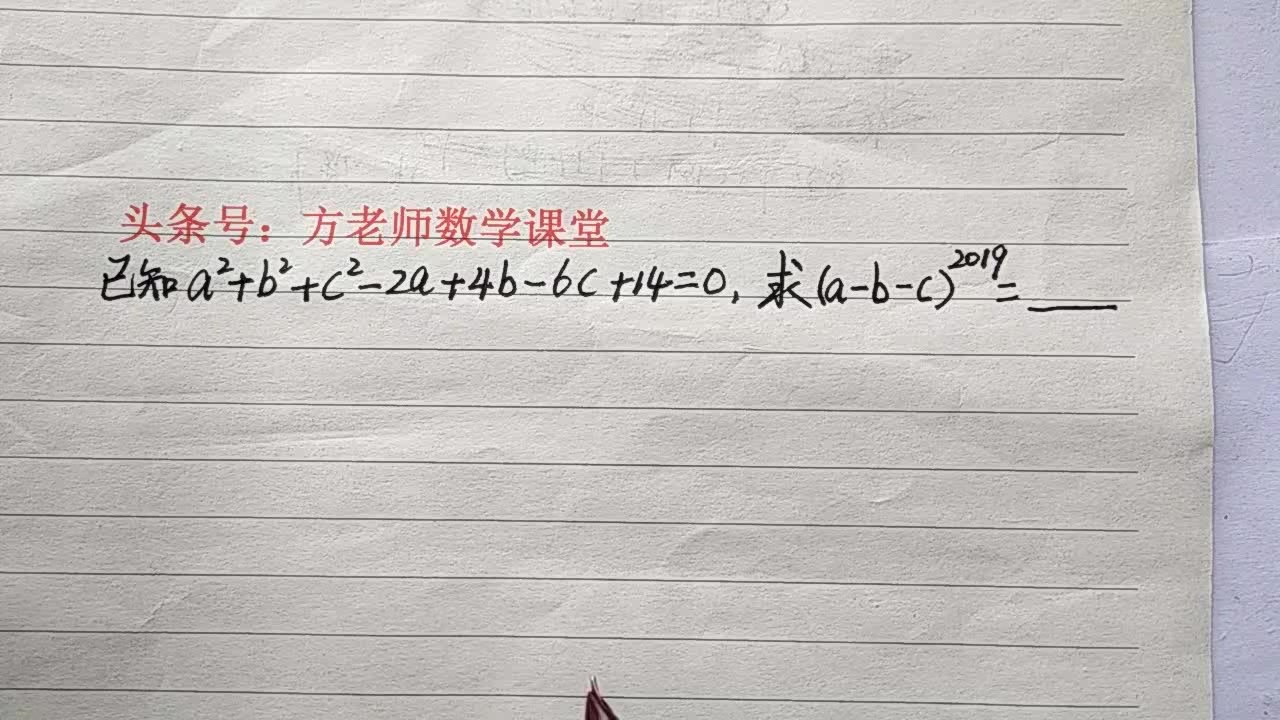 头条号：方老师数学课堂
已知a²+b²+c²-2a+4b-6c+14=0，求(a-b-c)²⁰¹⁹=____